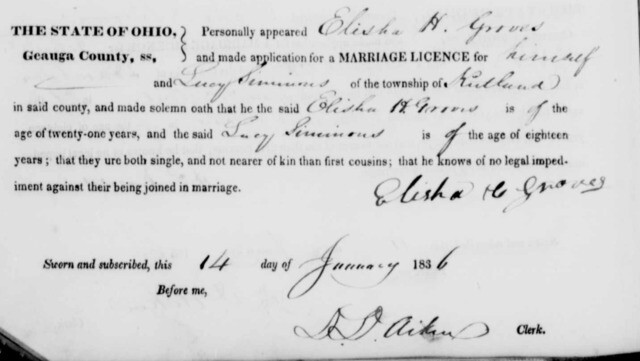 THE STATE OF OHIO, } Personally appeared Elisha H. Groves
Geauga County, ss, } and made application for a MARRIAGE LICENCE for himself
and Lucy Simmons of the township of Kirtland
in said county, and made solemn oath that he the said Elisha H Groves is of the
age of twenty-one years, and the said Lucy Simmons is of the age of eighteen
years; that they are both single, and not nearer of kin than first cousins; that he knows of no legal imped-
iment against their being joined in marriage.
Elisha H Groves
Sworn and subscribed, this 14 day of January 1836
Before me,
D. D. Aiken Clerk.